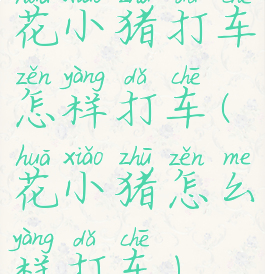 huā xiǎo zhū dǎ chē
花小猪打车
zěn yàng dǎ chē
怎样打车(
huā xiǎo zhū zěn me
花小猪怎么
yàng dǎ chē
样打车)